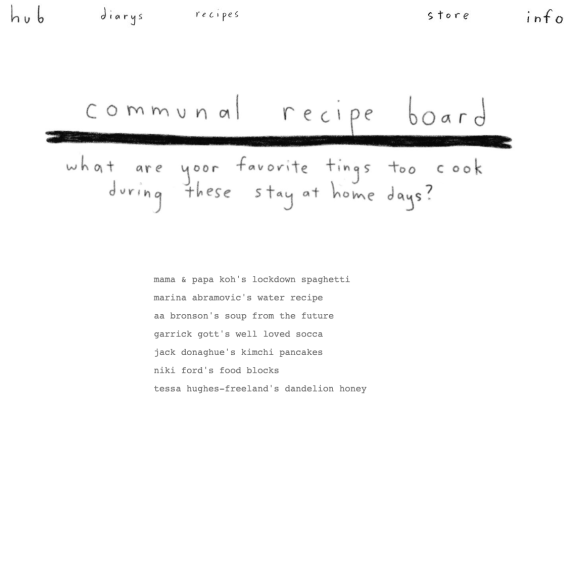 hub diarys recipes store info
communal recipe board
what are yoor favorite tings too cook
during these stay at home days?
mama & papa koh's lockdown spaghetti
marina abramovic's water recipe
aa bronson's soup from the future
garrick gott's well loved socca
jack donaghue's kimchi pancakes
niki ford's food blocks
tessa hughes-freeland's dandelion honey